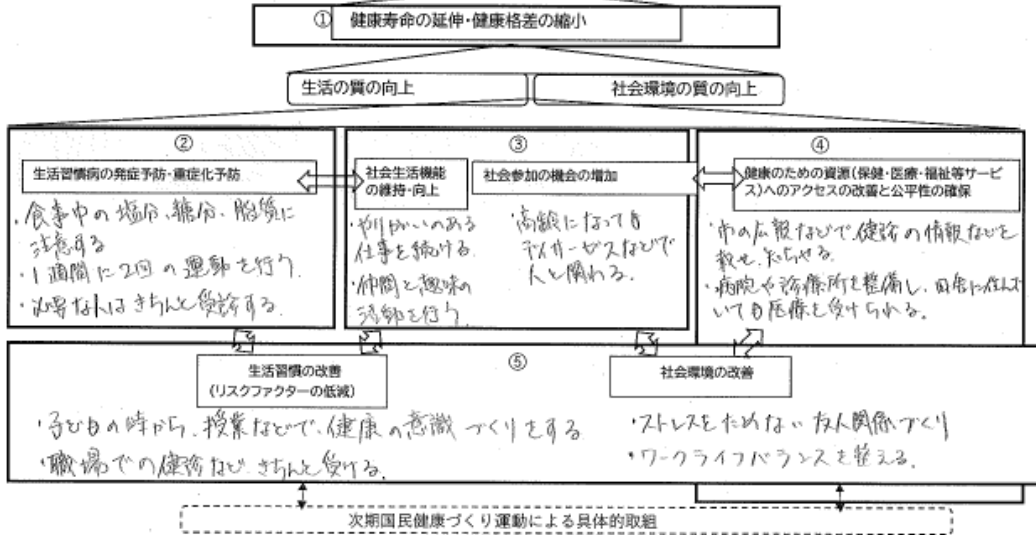 ① 健康寿命の延伸・健康格差の縮小
生活の質の向上
社会環境の質の向上
②
生活習慣病の発症予防・重症化予防
・食事中の塩分、糖分、脂質に
注意する
・1週間に2回の運動を行う.
・必要な人はきちんと受診する.
③
社会生活機能
の維持・向上
社会参加の機会の増加
・やりがいのある
仕事を続ける.
・仲間と趣味の
活動を行う.
・高齢になっても
デイサービスなどで
人と関わる.
④
健康のための資源(保健・医療・福祉等サービ
ス)へのアクセスの改善と公平性の確保
・市の広報などで、健診の情報などを
載せ、知らせる.
・病院や診療所を整備し、田舎に住んで
いても医療を受けられる。
⑤
生活習慣の改善
(リスクファクターの低減)
社会環境の改善
・子どもの時から、授業などで、健康の意識づくりをする
・職場での健診など きちんと受ける.
・ストレスをためない 友人関係づくり
・ワークライフバランスを整える.
次期国民健康づくり運動による具体的取組